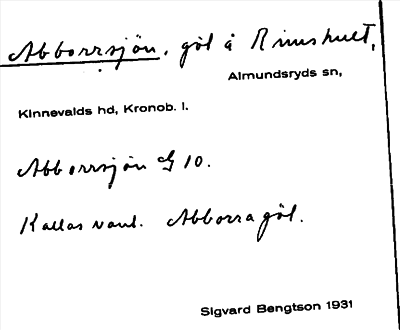 Abborrsjön, göl å Rimshult,
Almundsryds sn,
Kinnevalds hd, Kronob. l.
Abborrsjön G 10.
Kallas vanl. Abborragöl.
Sigvard Bengtson 1931